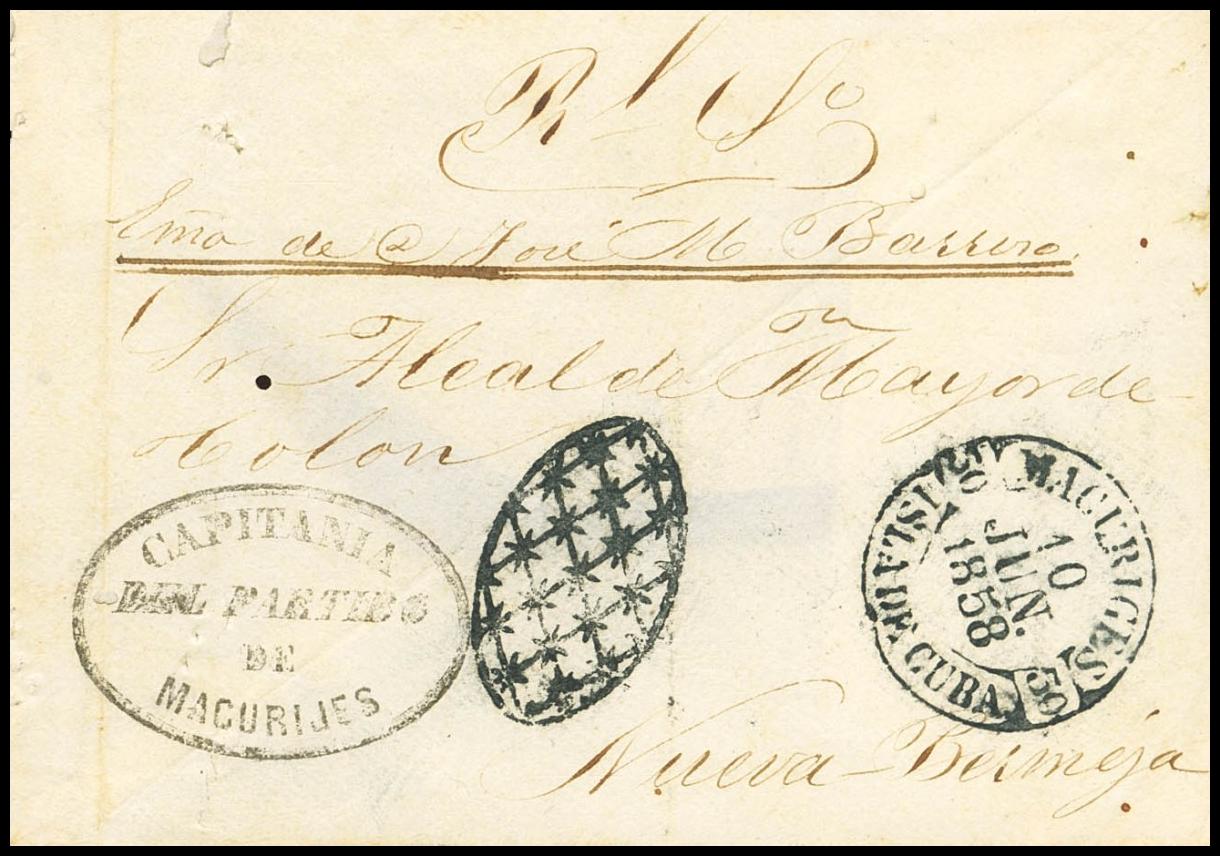 Rl So
Ema de D José M Barrero
Sr. Alcalde Mayor de
Colon
CAPITANIA
DEL PARTIDO
DE
MACURIJES
MACURIGES
10
JUN.
1858
ISLA DE CUBA
Nueva-Bermeja